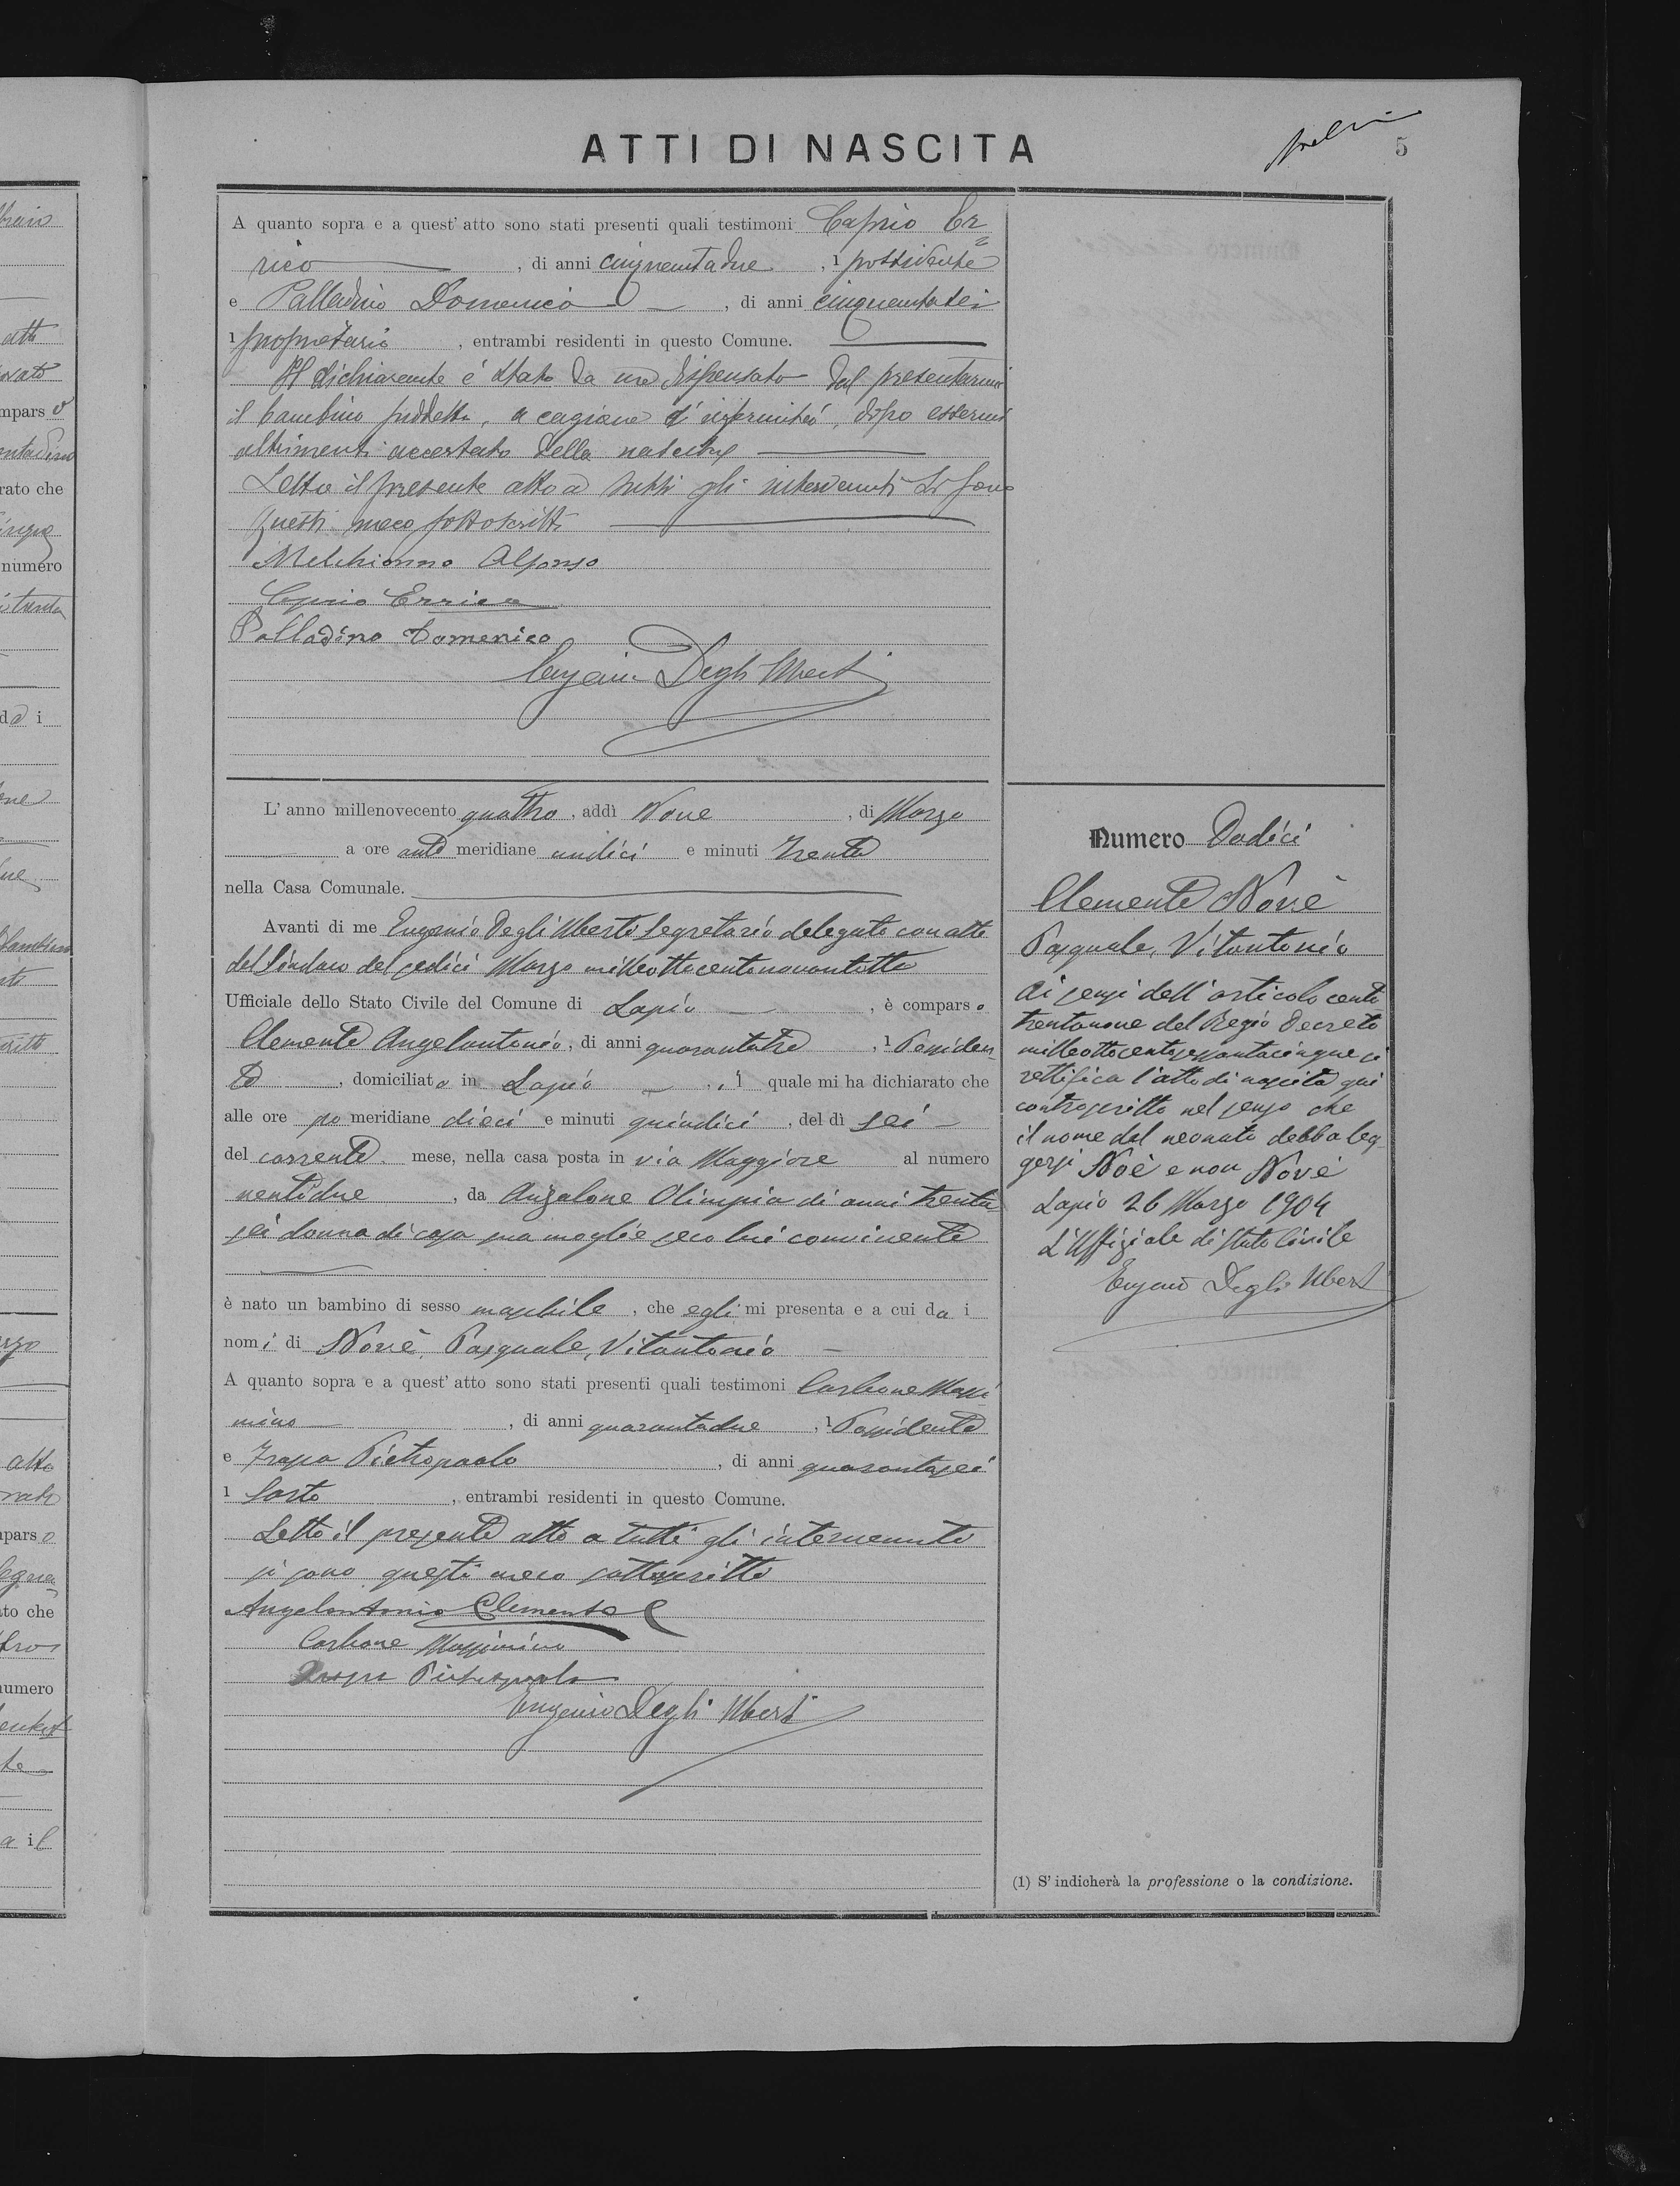 ATTI DI NASCITA
5
A quanto sopra e a quest' atto sono stati presenti quali testimoni Caprio Er
rico, di anni cinquantadue, 1 possidente
e Palladino Domenico, di anni cinquantasei
1 proprietario, entrambi residenti in questo Comune.
Il dichiarante è stato da me dispensato dal presentarmi
il bambino suddetto, a cagione d'infermità, dopo essermi
altrimenti accertato della nascita
Letto il presente atto a tutti gli intervenuti si sono
questi meco sottoscritti
Melchionno Alfonso
Caprio Errico
Palladino Domenico
Eugenio Degli Uberti
L' anno millenovecento quattro, addì Nove, di Marzo
a ore ante meridiane undici e minuti Trenta
nella Casa Comunale.
Avanti di me Eugenio Degli Uberti Segretario delegato con atto
del Sindaco del sedici Marzo milleottocentonovantotto
Ufficiale dello Stato Civile del Comune di Lapio, è comparso
Clemente Angelantonio, di anni quarantatre, 1 Possiden
te, domiciliato in Lapio, il quale mi ha dichiarato che
alle ore po meridiane dieci e minuti quindici, del dì sei
del corrente mese, nella casa posta in via Maggiore al numero
ventidue, da Anzalone Olimpia di anni trenta
sei donna di casa sua moglie seco lui convivente
è nato un bambino di sesso maschile, che egli mi presenta e a cui da i
nomi di Novè, Pasquale, Vitantonio
A quanto sopra e a quest' atto sono stati presenti quali testimoni Carbone Massi
mino, di anni quarantadue, 1 Possidente
e Trapa Pietropaolo, di anni quarantasei
1 Sarto, entrambi residenti in questo Comune.
Letto il presente atto a tutti gli intervenuti
si sono questi meco sottoscritti
Angelantonio Clemente
Carbone Massimino
Trapa Pietropaolo
Eugenio Degli Uberti
Numero Dodici
Clemente Novè
Pasquale, Vitantonio
Ai sensi dell'articolo cento
trentanove del Regio Decreto
milleottocentosessantacinque si
rettifica l'atto di nascita qui
controscritto nel senso che
il nome del neonato debba leg
gersi Noè e non Novè
Lapio 26 Marzo 1904
L'Uffiziale di Stato Civile
Eugenio Degli Uberti
(1) S' indicherà la professione o la condizione.